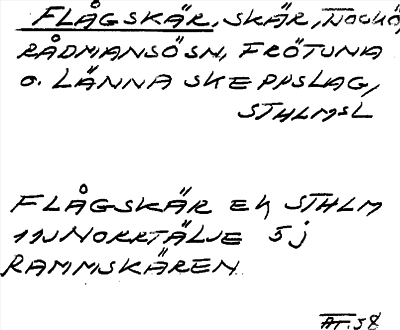 FLÅGSKÄR, SKÄR,
RÅDMANSÖSN, FRÖTUNA
O. LÄNNA SKEPPSLAG,
STHLMSL
FLÅGSKÄR EK STHLM
11J NORRTÄLJE 5j
RAMMSKÄREN
58